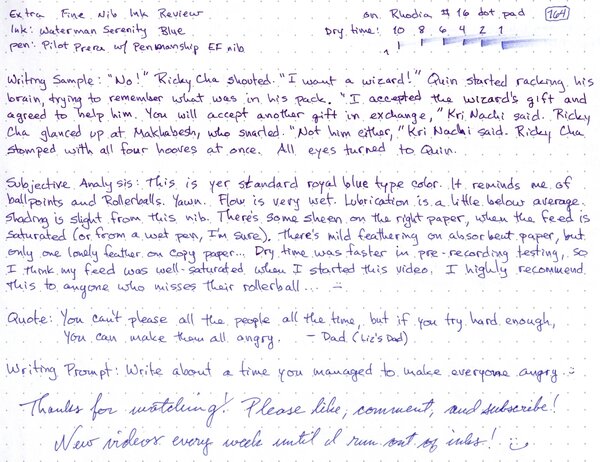 Extra Fine Nib Ink Review on Rhodia #16 dot pad 164
Ink: Waterman Serenity Blue Dry time: 10 8 6 4 2 1
pen: Pilot Prera w/ Penmanship EF nib
Writing Sample: "No!" Ricky Cha shouted. "I want a wizard!" Quin started racking his
brain, trying to remember what was in his pack. "I accepted the wizard's gift and
agreed to help him. You will accept another gift in exchange," Kri Nachi said. Ricky
Cha glanced up at Makhabesh, who snarled. "Not him either," Kri Nachi said. Ricky Cha
stomped with all four hooves at once. All eyes turned to Quin.
Subjective Analysis: This is yer standard royal blue type color. It reminds me of
ballpoints and Rollerballs. Yawn. Flow is very wet. Lubrication is a little below average.
shading is slight from this nib. There's some sheen on the right paper, when the feed is
saturated (or from a wet pen, I'm sure). There's mild feathering on absorbent paper, but
only one lonely feather on copy paper... Dry time was faster in pre-recording testing, so
I think my feed was well-saturated when I started this video. I highly recommend
this to anyone who misses their rollerball...
Quote: You can't please all the people all the time, but if you try hard enough,
You can make them all angry. - Dad (Liz's Dad)
Writing Prompt: Write about a time you managed to make everyone angry.
Thanks for watching! Please like, comment, and subscribe!
New videos every week until I run out of inks!